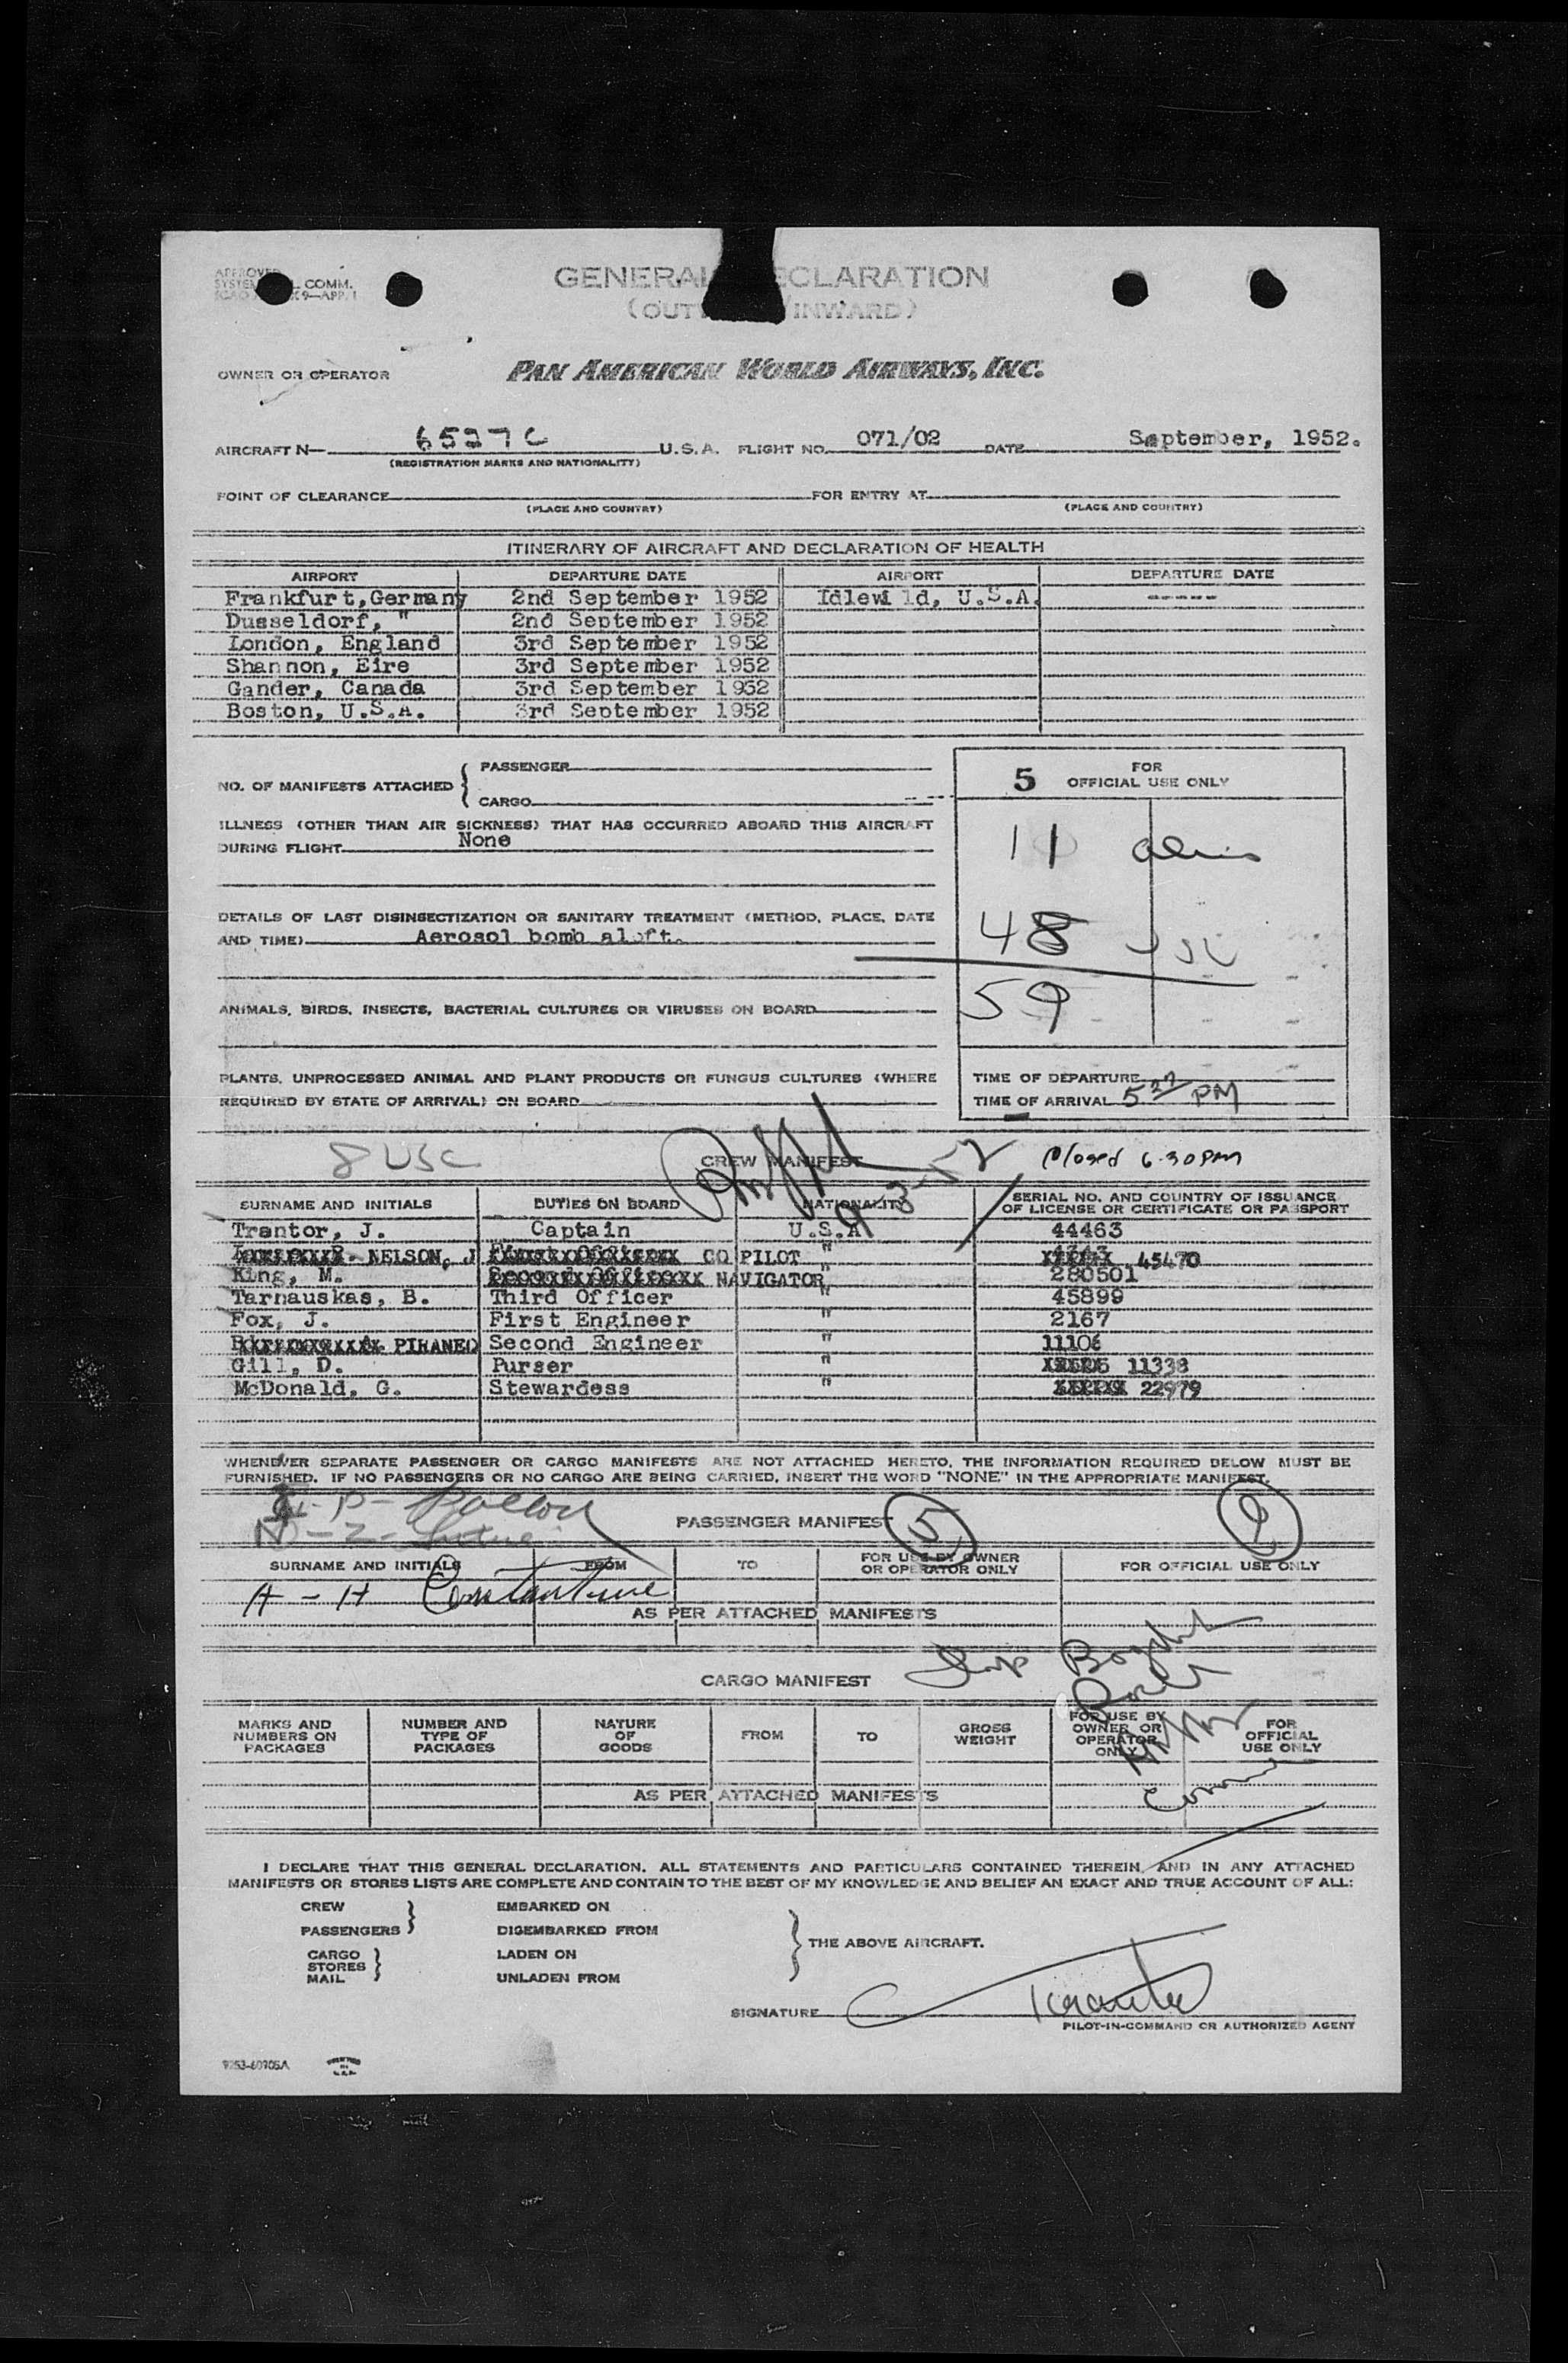 APPROVED
L. COMM.
9—APP. 1
GENERAL DECLARATION
INWARD)
OWNER OR OPERATOR PAN AMERICAN WORLD AIRWAYS, INC.
AIRCRAFT N— 6527C U.S.A. FLIGHT NO. 071/02 DATE September, 1952.
(REGISTRATION MARKS AND NATIONALITY)
POINT OF CLEARANCE FOR ENTRY AT
(PLACE AND COUNTRY) (PLACE AND COUNTRY)
ITINERARY OF AIRCRAFT AND DECLARATION OF HEALTH
AIRPORT DEPARTURE DATE AIRPORT DEPARTURE DATE
Frankfurt,Germany 2nd September 1952 Idlewild, U.S.A. -----
Dusseldorf, " 2nd September 1952
London, England 3rd September 1952
Shannon, Eire 3rd September 1952
Gander, Canada 3rd September 1952
Boston, U.S.A. 3rd September 1952
NO. OF MANIFESTS ATTACHED { PASSENGER
CARGO
5 FOR OFFICIAL USE ONLY
ILLNESS (OTHER THAN AIR SICKNESS) THAT HAS OCCURRED ABOARD THIS AIRCRAFT
DURING FLIGHT None
11
DETAILS OF LAST DISINSECTIZATION OR SANITARY TREATMENT (METHOD, PLACE, DATE
AND TIME) Aerosol bomb aloft.
48 USC
59
ANIMALS, BIRDS, INSECTS, BACTERIAL CULTURES OR VIRUSES ON BOARD
PLANTS, UNPROCESSED ANIMAL AND PLANT PRODUCTS OR FUNGUS CULTURES (WHERE
REQUIRED BY STATE OF ARRIVAL) ON BOARD
TIME OF DEPARTURE
TIME OF ARRIVAL 5 37 PM
8 USC
CREW MANIFEST
9-3-52
Closed 6.30PM
SURNAME AND INITIALS DUTIES ON BOARD NATIONALITY SERIAL NO. AND COUNTRY OF ISSUANCE
OF LICENSE OR CERTIFICATE OR PASSPORT
Trantor, J. Captain U.S.A. 44463
NELSON, J CO PILOT " 45470
King, M. NAVIGATOR " 280501
Tarnauskas, B. Third Officer " 45899
Fox, J. First Engineer " 2167
PIHANED Second Engineer " 11106
Gill, D. Purser " 11338
McDonald, G. Stewardess " 22979
WHENEVER SEPARATE PASSENGER OR CARGO MANIFESTS ARE NOT ATTACHED HERETO, THE INFORMATION REQUIRED BELOW MUST BE
FURNISHED. IF NO PASSENGERS OR NO CARGO ARE BEING CARRIED, INSERT THE WORD "NONE" IN THE APPROPRIATE MANIFEST.
PASSENGER MANIFEST 5 2
SURNAME AND INITIALS FROM TO FOR USE BY OWNER
OR OPERATOR ONLY FOR OFFICIAL USE ONLY
A - H Constantine
AS PER ATTACHED MANIFESTS
CARGO MANIFEST
MARKS AND
NUMBERS ON
PACKAGES NUMBER AND
TYPE OF
PACKAGES NATURE
OF
GOODS FROM TO GROSS
WEIGHT FOR USE BY
OWNER OR
OPERATOR
ONLY FOR
OFFICIAL
USE ONLY
AS PER ATTACHED MANIFESTS
I DECLARE THAT THIS GENERAL DECLARATION, ALL STATEMENTS AND PARTICULARS CONTAINED THEREIN, AND IN ANY ATTACHED
MANIFESTS OR STORES LISTS ARE COMPLETE AND CONTAIN TO THE BEST OF MY KNOWLEDGE AND BELIEF AN EXACT AND TRUE ACCOUNT OF ALL:
CREW EMBARKED ON
PASSENGERS } DISEMBARKED FROM
} THE ABOVE AIRCRAFT.
CARGO LADEN ON
STORES }
MAIL UNLADEN FROM
SIGNATURE
PILOT-IN-COMMAND OR AUTHORIZED AGENT
PRINTED
IN
U.S.A.